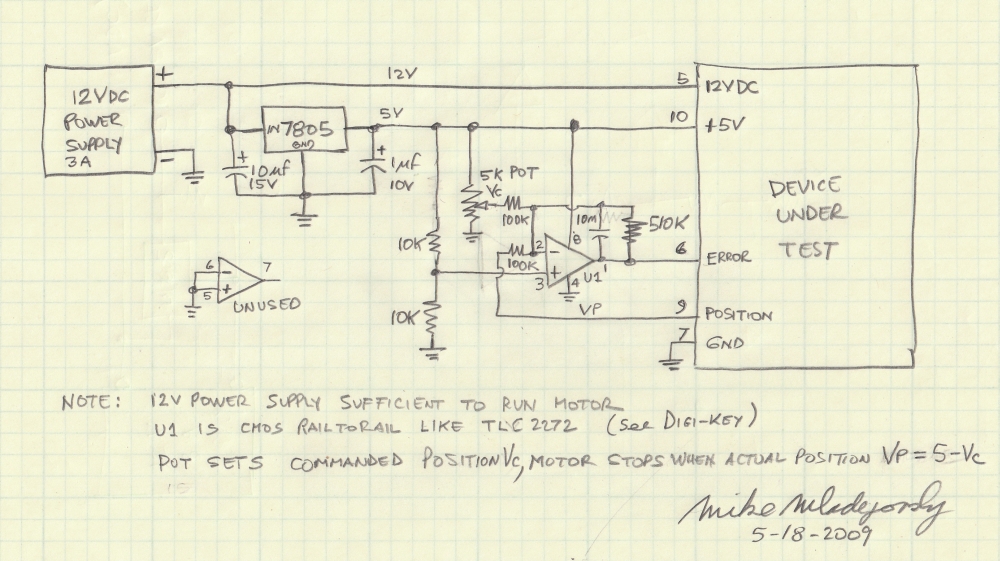 12VDC
POWER
SUPPLY
3A
+
−
12V
IN 7805
GND
5V
+
10µf
15V
+
1µf
10V
5K POT
Vc
100K
100K
10M
510K
10K
10K
2 −
+
3
8
1
4
U1
VP
5 12VDC
10 +5V
6 ERROR
9 POSITION
7 GND
DEVICE
UNDER
TEST
6 −
5 +
7
UNUSED
NOTE: 12V POWER SUPPLY SUFFICIENT TO RUN MOTOR
U1 IS CMOS RAILTORAIL LIKE TLC2272 (See DIGI-KEY)
POT SETS COMMANDED POSITION Vc, MOTOR STOPS WHEN ACTUAL POSITION VP = 5-Vc
Mike
5-18-2009